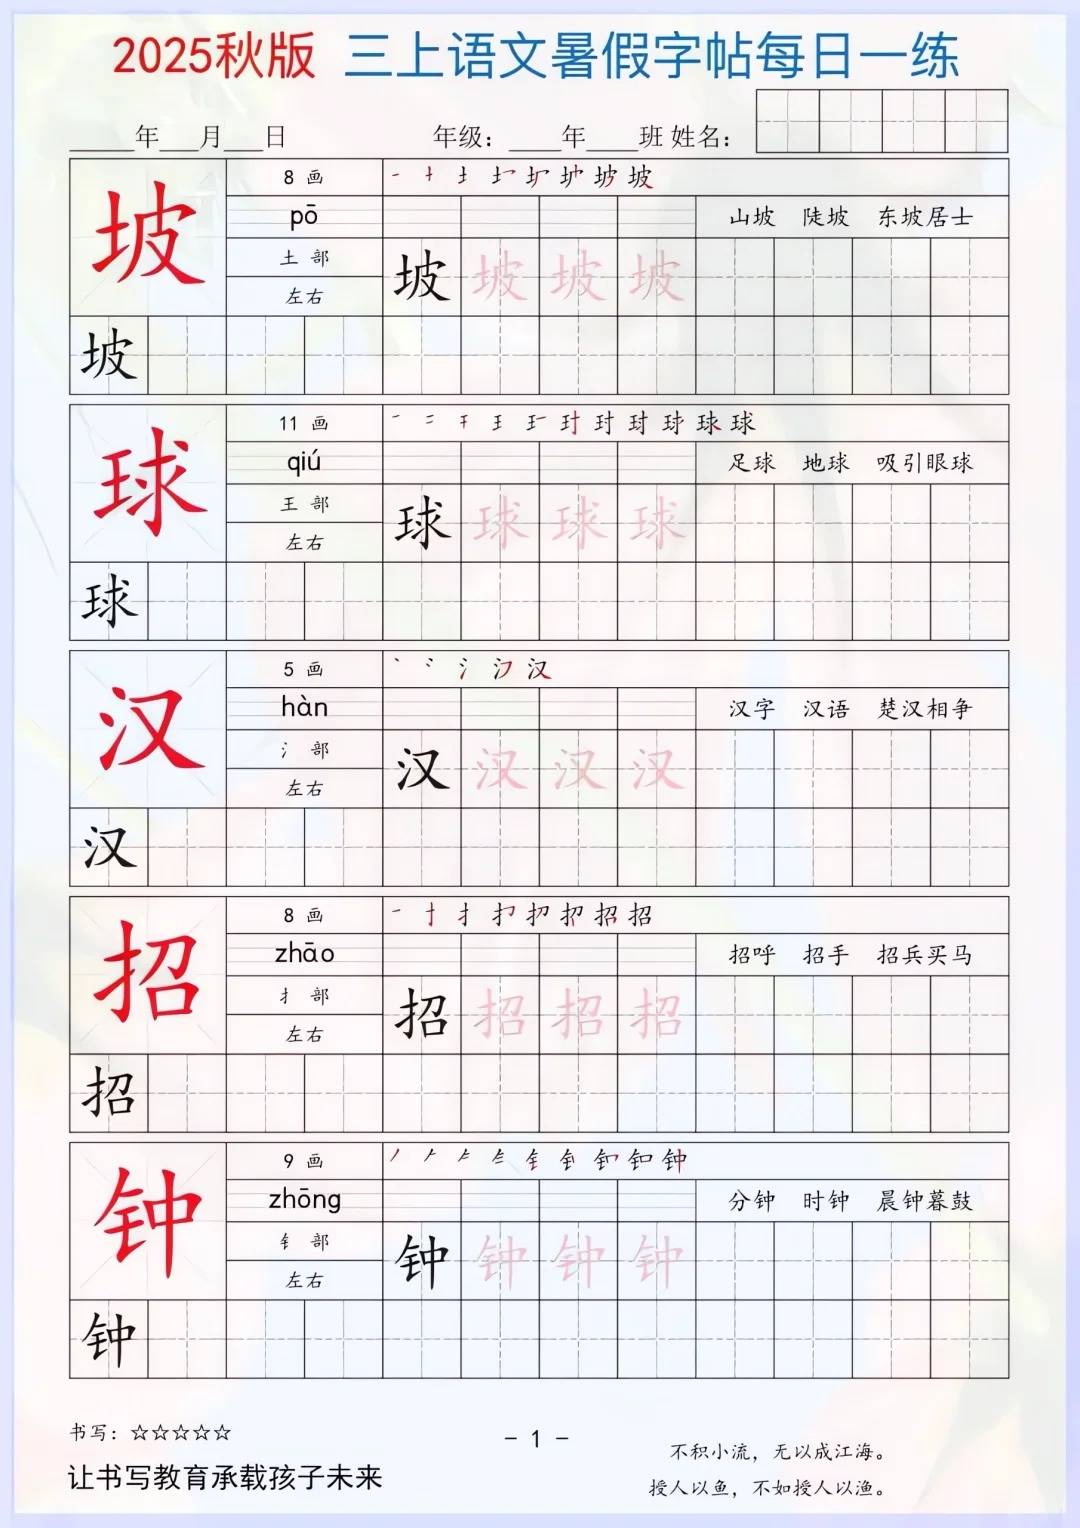 2025秋版 三上语文暑假字帖每日一练
____年___月___日 年级：____年____班 姓名：
坡 8 画
pō 山坡 陡坡 东坡居士
土 部 坡 坡 坡 坡
左右
坡
球 11 画
qiú 足球 地球 吸引眼球
王 部 球 球 球 球
左右
球
汉 5 画
hàn 汉字 汉语 楚汉相争
氵 部 汉 汉 汉 汉
左右
汉
招 8 画
zhāo 招呼 招手 招兵买马
扌 部 招 招 招 招
左右
招
钟 9 画
zhōng 分钟 时钟 晨钟暮鼓
钅 部 钟 钟 钟 钟
左右
钟
书写：☆☆☆☆☆
让书写教育承载孩子未来
- 1 -
不积小流，无以成江海。
授人以鱼，不如授人以渔。